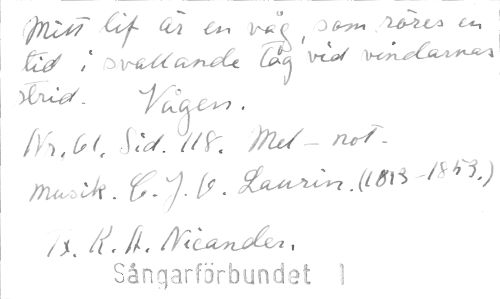 Mitt lif är en våg, som röres en
tid i svallande tåg vid vindarnas
strid. Vågen.
Nr. 61. Sid. 118. Mel-not.
Musik. C. J. O. Laurin. (1813-1853.)
Tx. K. A. Nicander.
Sångarförbundet 1